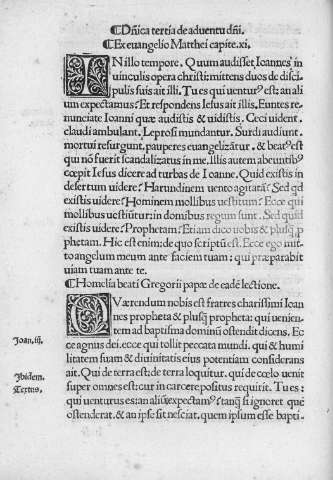 ¶Dñica tertia de aduentu dñi.
¶Ex euangelio Matthei capite.xi.
IN illo tempore. Quum audisset, Ioannes in
uinculis opera christi: mittens duos de disci
pulis suis ait illi. Tu es qui ventur⁹ est: an ali
um expectamus? Et respondens Iesus ait illis. Euntes re
nunciate Ioanni quæ audistis & uidistis. Ceci uident.
claudi ambulant. Leprosi mundantur. Surdi audiunt.
mortui resurgunt, pauperes euangelizãtur. & beat⁹ est
qui nõ fuerit scandalizatus in me. Illis autem abeuntib⁹
cœpit Iesus dicere ad turbas de Ioanne. Quid existis in
desertum uidere? Harundinem uento agitatã? Sed qd
existis videre? Hominem mollibus uestitum? Ecce qui
mollibus uestiũtur: in domibus regum sunt. Sed quid
existis videre? Prophetam? Etiam dico uobis & plusq̃ p
phetam. Hic est enim: de quo scriptũ est. Ecce ego mit
to angelum meum ante faciem tuam: qui præparabit
uiam tuam ante te.
¶Homelia beati Gregorii papæ de eadē lectione.
QVærendum nobis est fratres charissimi Ioan
nes propheta & plusq̃ propheta: qui uenien
tem ad baptisma dominũ ostendit dicens. Ec
Ioan.iij.
ce agnus dei. ecce qui tollit peccata mundi. qui & humi
litatem suam & diuinitatis eius potentiam considerans
ait. Qui de terra est: de terra loquitur. qui de cœlo uenit
Ibidem.
super omnes est: cur in carcere positus requirit. Tu es:
Textus.
qui venturus es: an aliũ expectam⁹? tanq̃ si ignoret quē
ostenderat. & an ipse sit nesciat, quem ipsum esse bapti-